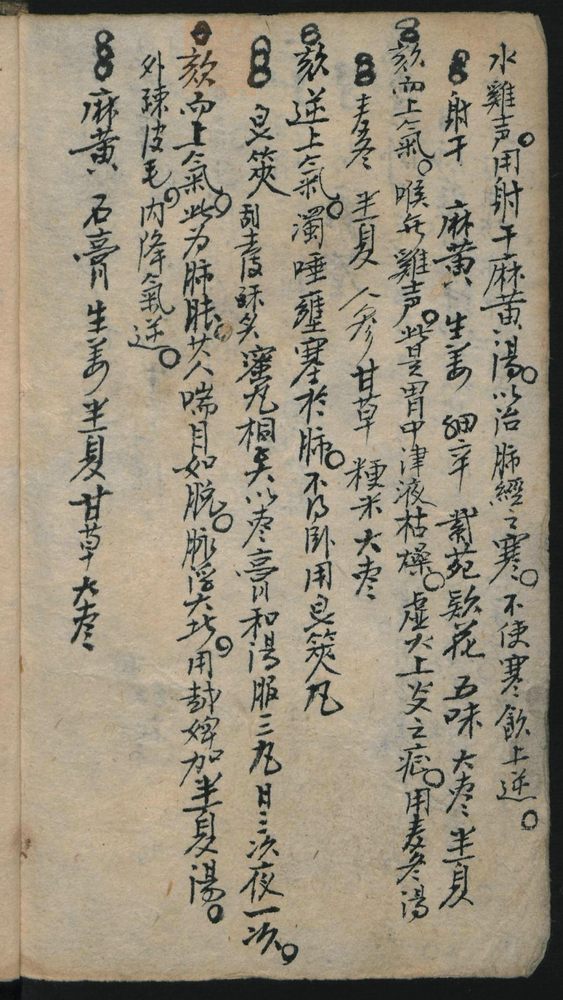 水雞声。用射干麻黃湯。以治肺經之寒。不使寒飲上逆。
射干 麻黃 生姜 細辛 紫苑 欵花 五味 大枣 半夏
欬而上氣。喉無雞声。此是胃中津液枯燥。虛火上炎之症。用麦冬湯
麦冬 半夏 人參 甘草 粳米 大枣
欬逆上氣。濁唾壅塞於肺。不得卧用皂筴丸
皂筴 刮去皮酥炙 蜜丸桐大以枣膏和湯服三丸日三次夜一次。
欬而上氣。此为肺胀。其人喘目如脫。脉浮大者。用越婢加半夏湯。
外疎皮毛。內降氣逆。
麻黃 石膏 生姜 半夏 甘草 大枣